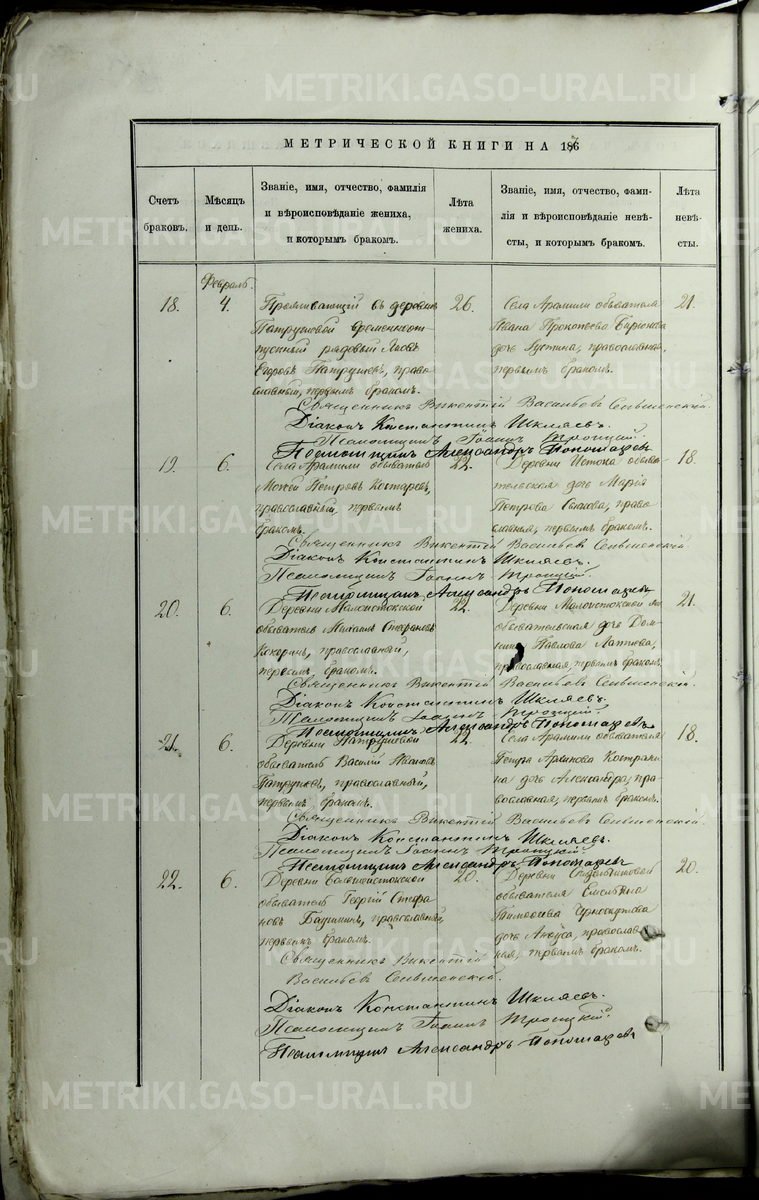 МЕТРИЧЕСКОЙ КНИГИ НА 1876
Счетъ браковъ.
Мѣсяцъ и день.
Званіе, имя, отчество, фамилія
и вѣроисповѣданіе жениха,
и которымъ бракомъ.
Лѣта жениха.
Званіе, имя, отчество, фами-
лія и вѣроисповѣданіе невѣ-
сты, и которымъ бракомъ.
Лѣта невѣ-
сты.
Февраль.
18.
4.
Проживающій въ деревнѣ
Патрушевой временноот-
пускный рядовый Яковъ
Егоровъ Патрушевъ, право-
славный, первымъ бракомъ.
26.
Села Арамили обывателя
Ивана Прокопьева Бирюкова
дочь Іустина, православная,
первымъ бракомъ.
21.
Священникъ Викентій Васильевъ
Діаконъ Константинъ Шкляевъ.
Псаломщикъ Іоаннъ Троицкій.
Псаломщикъ Александръ Пономаревъ
19.
6.
Села Арамили обыватель
Моисей Петровъ Костаревъ,
православный, первымъ
бракомъ.
22.
Деревни Истока обыва-
тельская дочь Марія
Петрова православная, первымъ бракомъ.
18.
Священникъ Викентій Васильевъ
Діаконъ Константинъ Шкляевъ.
Псаломщикъ Іоаннъ Троицкій.
Псаломщикъ Александръ Пономаревъ
20.
6.
Деревни Малоистокской
обыватель Михаилъ Стефановъ
Кокоринъ, православный,
первымъ бракомъ.
22.
Деревни Малоистокской
обывательская дочь Дом-
Павлова Лаптева,
православная, первымъ бракомъ.
21.
Священникъ Викентій Васильевъ
Діаконъ Константинъ Шкляевъ.
Псаломщикъ Іоаннъ Троицкій.
Псаломщикъ Александръ Пономаревъ
21.
6.
Деревни Патрушевой
обыватель Василій Ивановъ
Патрушевъ, православный,
первымъ бракомъ.
22.
Села Арамили обывателя
Петра Архипова
дочь Александра, пра-
вославная, первымъ бракомъ.
18.
Священникъ Викентій Васильевъ
Діаконъ Константинъ Шкляевъ.
Псаломщикъ Іоаннъ Троицкій.
Псаломщикъ Александръ Пономаревъ
22.
6.
Деревни Большеистокской
обыватель Георгій Стефа-
новъ православный,
первымъ бракомъ.
20.
Деревни
обывателя Емельяна
Тимофеева Черноскутова
дочь Анфуса, православ-
ная, первымъ бракомъ.
20.
Священникъ Викентій
Васильевъ
Діаконъ Константинъ Шкляевъ.
Псаломщикъ Іоаннъ Троицкій.
Псаломщикъ Александръ Пономаревъ
METRIKI.GASO-URAL.RU